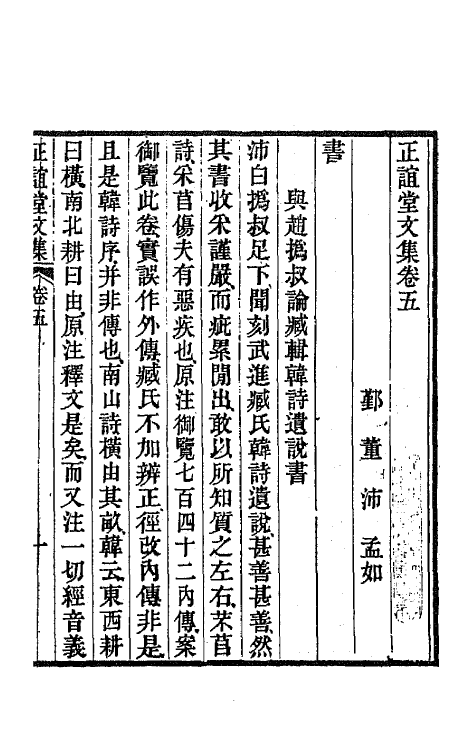 正誼堂文集卷五
鄞董沛孟如
書
與趙撝叔論臧輯韓詩遺說書
沛白撝叔足下聞刻武進臧氏韓詩遺說甚善甚善然
其書收采謹嚴而疵累閒出敢以所知質之左右芣苢
詩采苢傷夫有惡疾也原注御覽七百四十二內傳案
御覽此卷實誤作外傳臧氏不加辨正徑改內傳非是
且是韓詩序并非傳也南山詩橫由其畝韓云東西耕
曰橫南北耕曰由原注釋文是矣而又注一切經音義
正誼堂文集 卷五 一